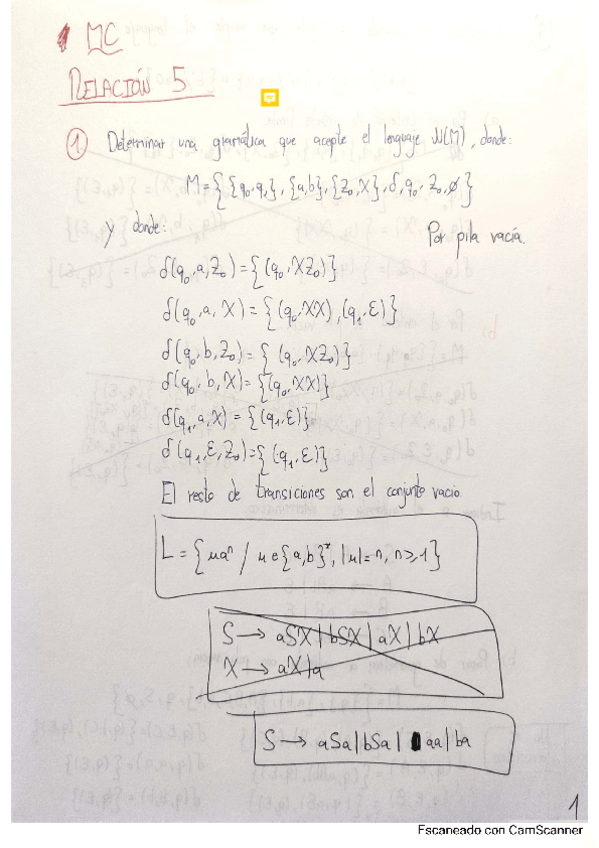 MC
RELACIÓN 5
① Determinar una gramática que acepte el lenguaje N(M), donde:
M={{q₀,q₁},{a,b},{Z₀,X},δ,q₀,Z₀,ø}
y donde:
Por pila vacía.
δ(q₀,a,Z₀)={(q₀,XZ₀)}
δ(q₀,a,X)={(q₀,XX),(q₁,ε)}
δ(q₀,b,Z₀)={(q₀,XZ₀)}
δ(q₀,b,X)={(q₀,XX)}
δ(q₁,a,X)={(q₁,ε)}
δ(q₁,ε,Z₀)={(q₁,ε)}
El resto de transiciones son el conjunto vacío
L={uaⁿ/ u∈{a,b}*, |u|=n, n≥1}
S→aSX|bSX|aX|bX
X→aX|a
S→aSa|bSa|aa|ba
1
Escaneado con CamScanner